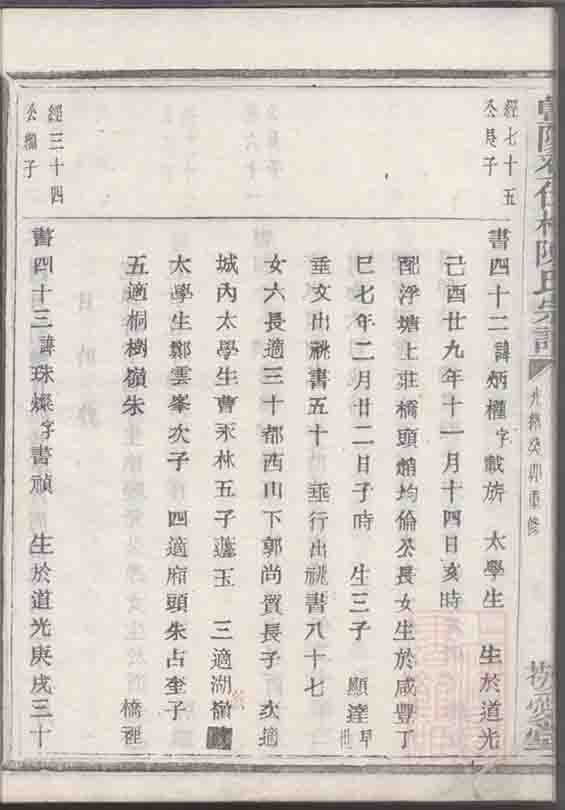 經七十五
公長子
書四十二諱炳權字載族 太學生 生於道光
己酉廿九年十一月十四日亥時
配浮塘上莊橋頭趙均倫公長女生於咸豐丁
巳七年二月廿二日子時 生三子 顯達早世
垂文出祧書五十 垂行出祧書八十七
女六長適三十都西山下郭尚賓長子 次適
城內太學生曹永林五子蓮玉 三適湖嶺
太學生鄭雲峯次子 四適廂頭朱占奎子
五適桐樹嶺朱 橋裡
經三十四
公 子
書四十三諱珠燦字書禎 生於道光庚戌三十
陳氏宗譜
光緒癸卯重修